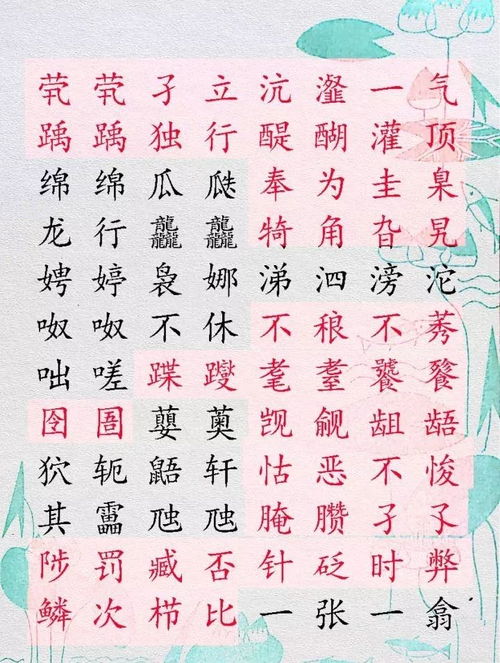 茕茕孑立沆瀣一气
踽踽独行醍醐灌顶
绵绵瓜瓞奉为圭臬
龙行龘龘犄角旮旯
娉婷袅娜涕泗滂沱
呶呶不休不稂不莠
咄嗟蹀躞耄耋饕餮
囹圄蘡薁觊觎龃龉
狖轭鼯轩怙恶不悛
其靁虺虺腌臜孑孓
陟罚臧否针砭时弊
鳞次栉比一张一翕